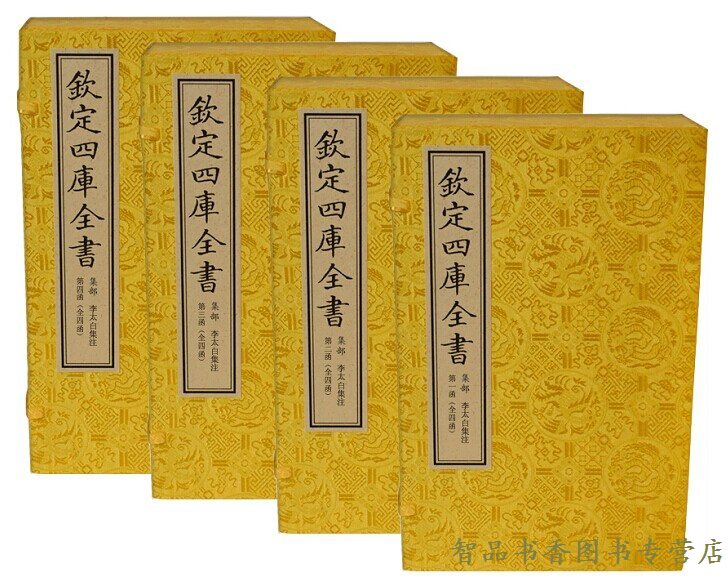 欽定四庫全書
集部 李太白集注
第四函（全四函）
欽定四庫全書
集部 李太白集注
第三函（全四函）
欽定四庫全書
集部 李太白集注
第二函（全四函）
欽定四庫全書
集部 李太白集注
第一函（全四函）
智品书香图书专营店